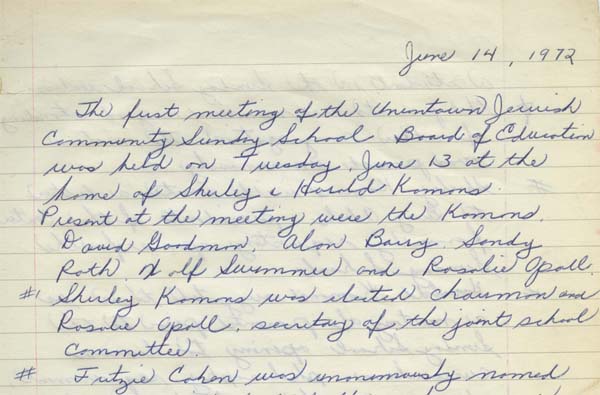 June 14, 1972
The first meeting of the Uniontown Jewish
Community Sunday School Board of Education
was held on Tuesday, June 13 at the
home of Shirley & Harold Komons.
Present at the meeting were the Komons,
David Goodman, Alan Barry, Sandy
Roth, Wolf Swimmer and Rosalie Opall.
#1 Shirley Komons was elected chairman and
Rosalie Opall, secretary of the joint school
committee.
# Fritzie Cohen was unanimously named